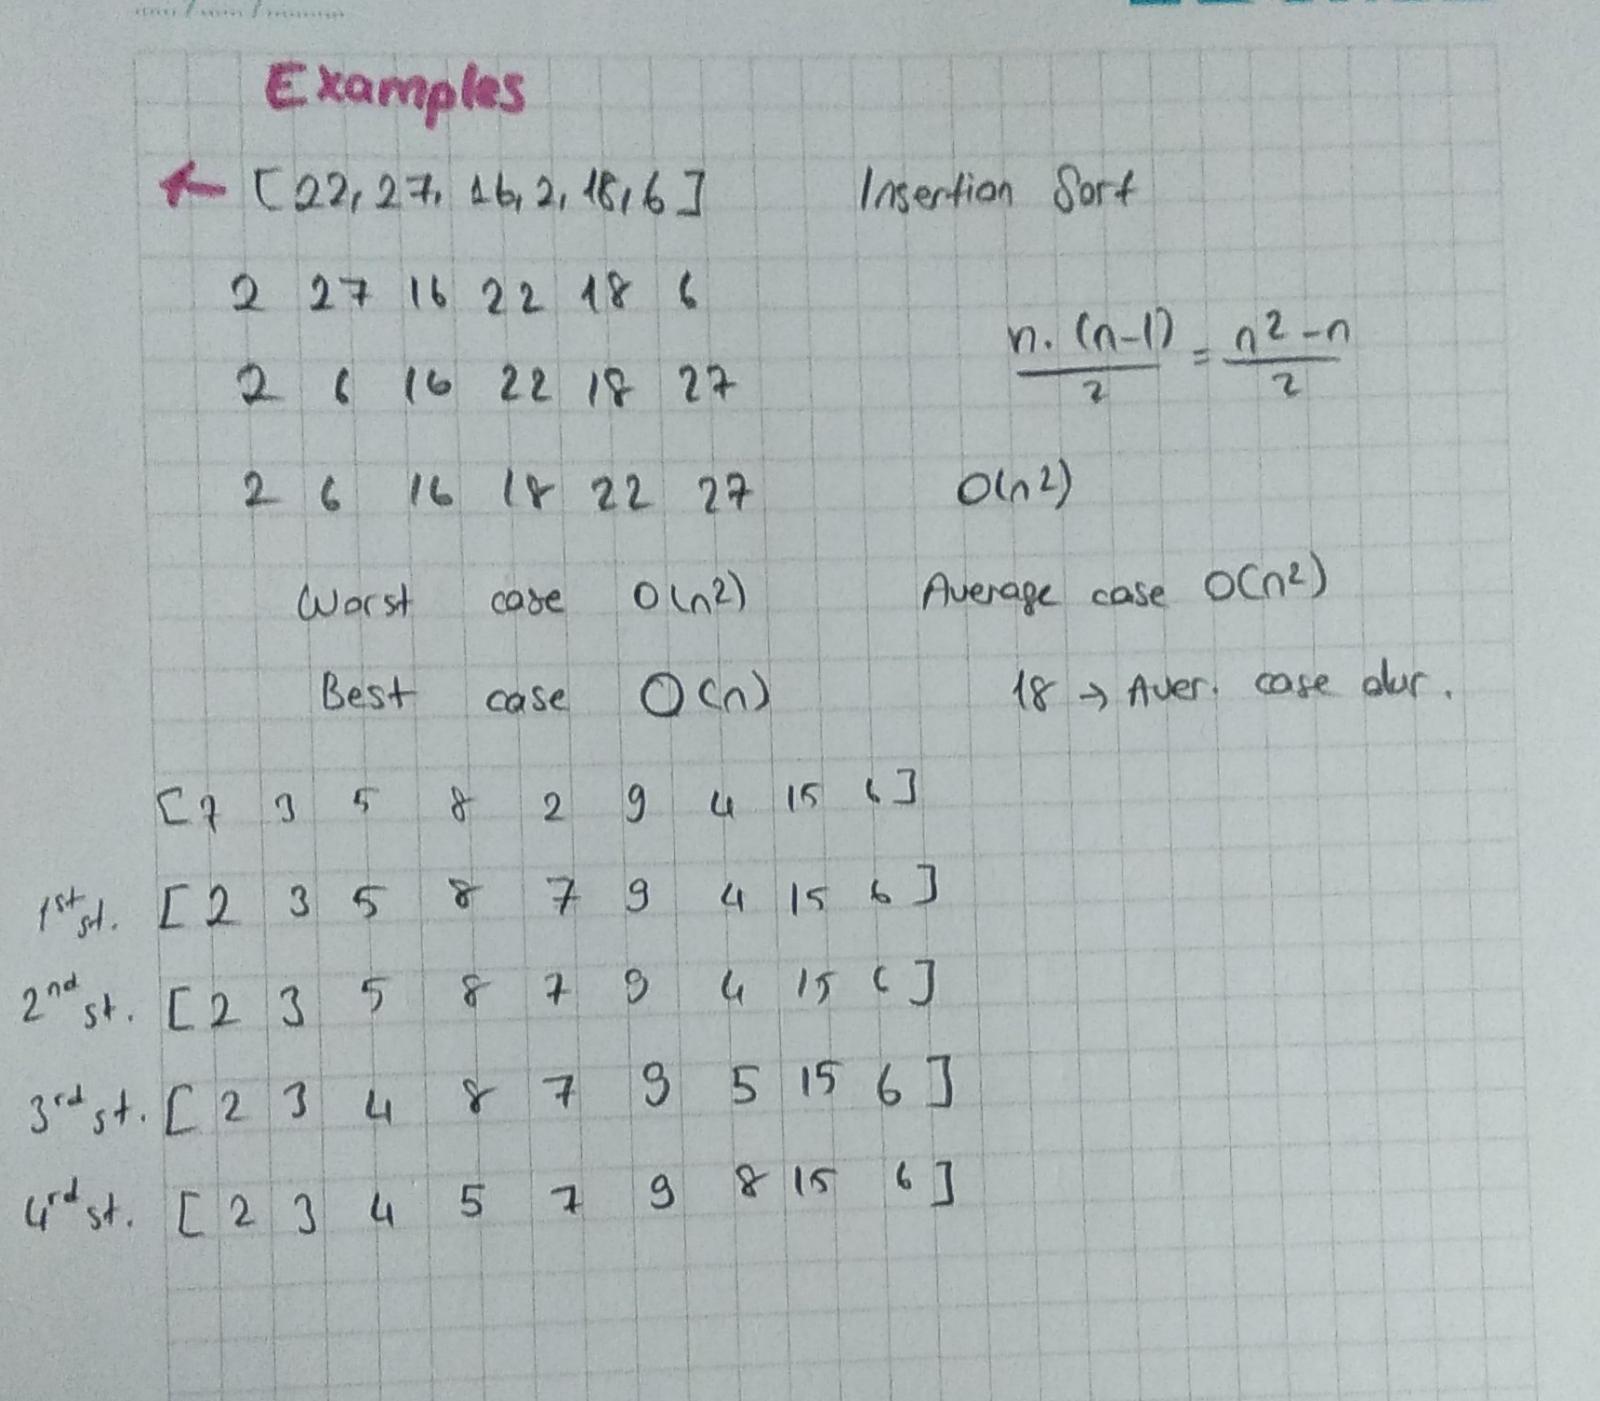 Examples
[22, 27, 16, 2, 18, 6] Insertion Sort
2 27 16 22 18 6
n. (n-1)/2 = n2-n/2
2 6 16 22 18 27
2 6 16 18 22 27 O(n2)
Worst case O(n2) Average case O(n2)
Best case O(n) 18 → Aver. case dur.
[7 3 5 8 2 9 4 15 6]
1st st. [2 3 5 8 7 9 4 15 6]
2nd st. [2 3 5 8 7 9 4 15 6]
3rd st. [2 3 4 8 7 9 5 15 6]
4rd st. [2 3 4 5 7 9 8 15 6]